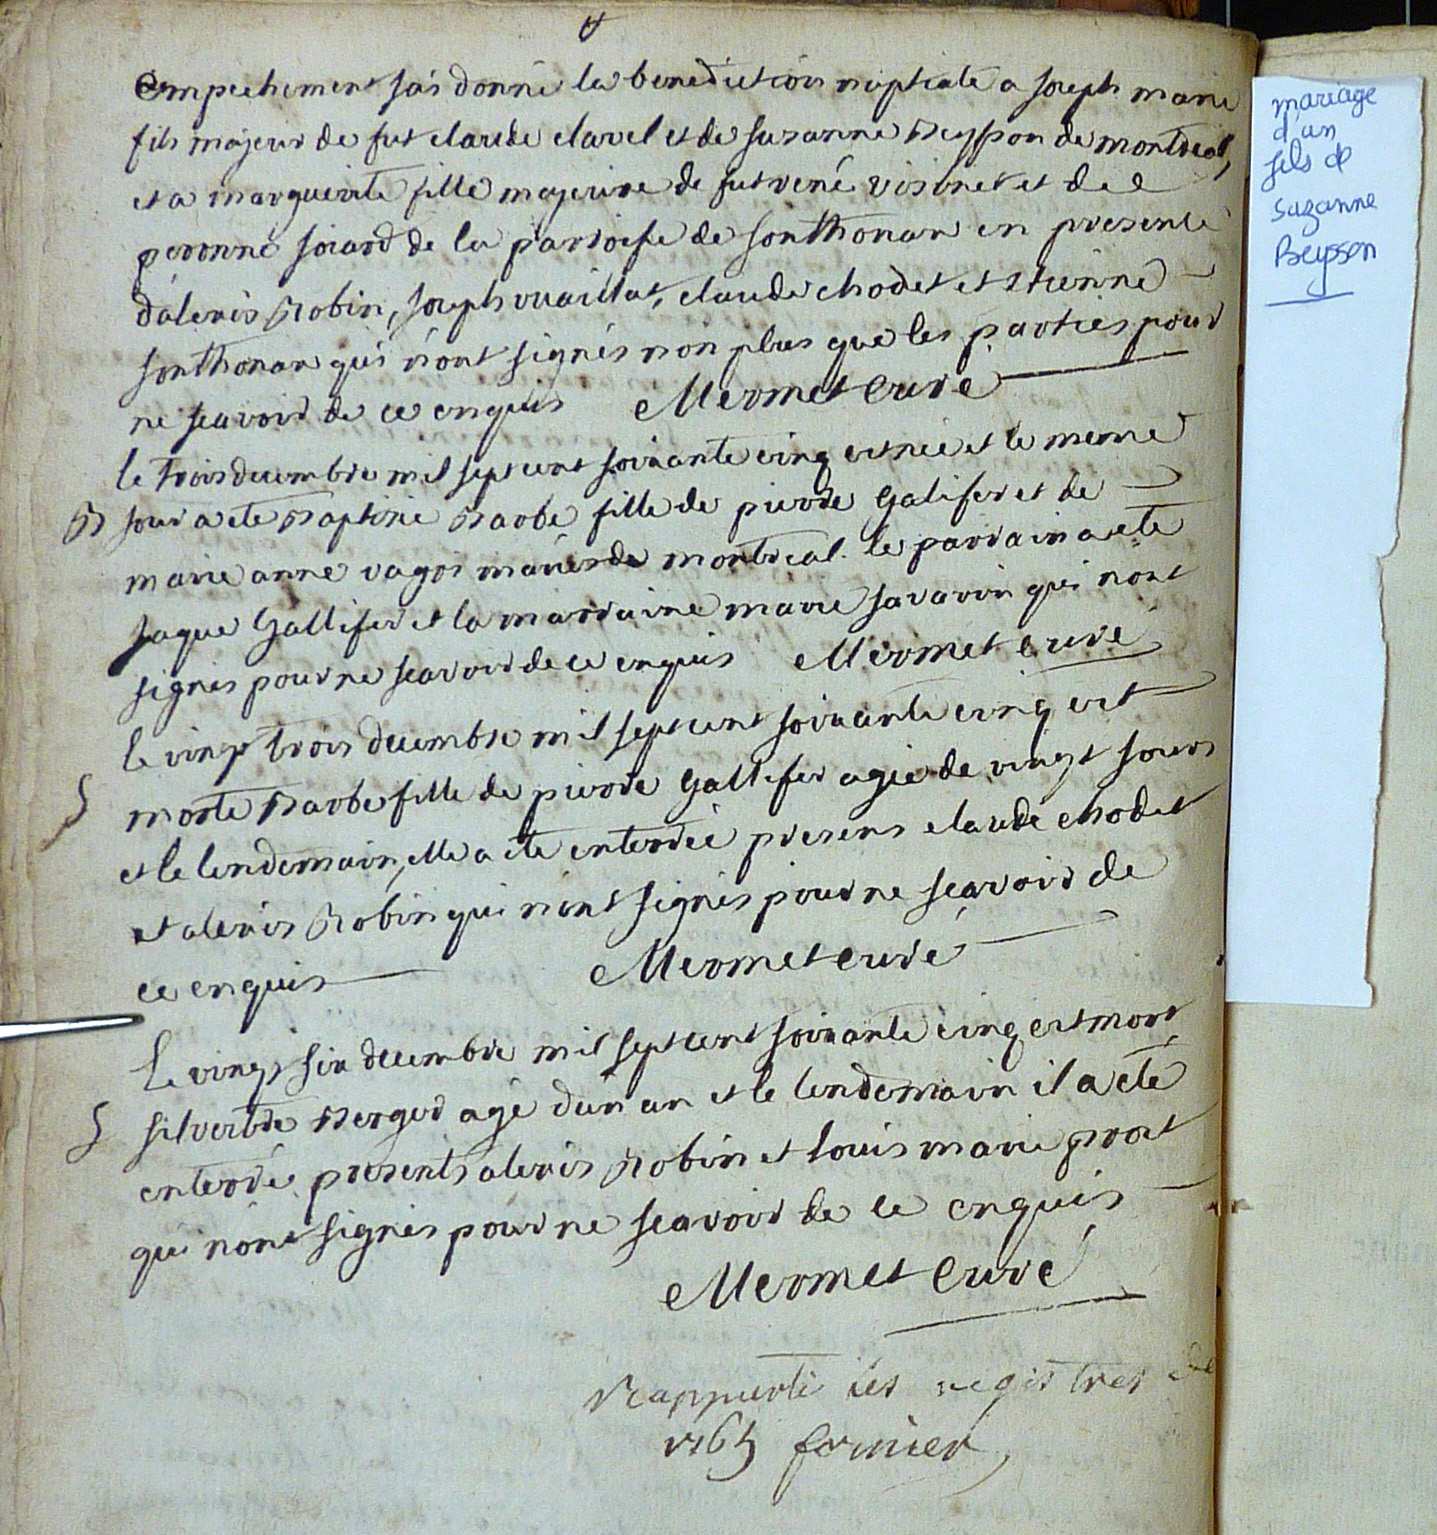 empechement j'ais donné la benediction nuptiale a joseph marie
fils majeur de fut claude clavel et de susanne Beysson de montreal,
et a marguerite fille majeure de fut rené visinet et de
peronne soiard de la parroisse de sonthonax en presence
d'alexis Robin, joseph vuaillat, claude chodet et etienne
sonthonax qui n'ont signés non plus que les parties pour
ne scavoir de ce enquis Mermet curé
le trois decembre mil sept cent soixante cinq est née et le meme
B jour a eté Baptisée Barbe fille de pierre Gallifer et de
marie anne vagos mariés de montreal. le parrain a eté
jaque Gallifer et la marraine marie savarin qui nont
signés pour ne scavoir de ce enquis Mermet curé
le vingt trois decembre mil sept cent soixante cinq est
S morte Barbe fille de pierre Gallifer agée de vingt jours
et le lendemain, elle a eté enterrée presens claude chodet
et alexis Robin qui n'ont signés pour ne scavoir de
ce enquis Mermet curé
Le vingt six decembre mil sept cent soixante cinq est mort
S silvestre Berger agé d'un an et le lendemain il a eté
enterré presents alexis Robin et louis marie prost
qui n'ont signés pour ne scavoir de ce enquis
Mermet curé
Rapporté les registres de
1765 fornier
mariage
d'un
fils de
suzanne
Beysson